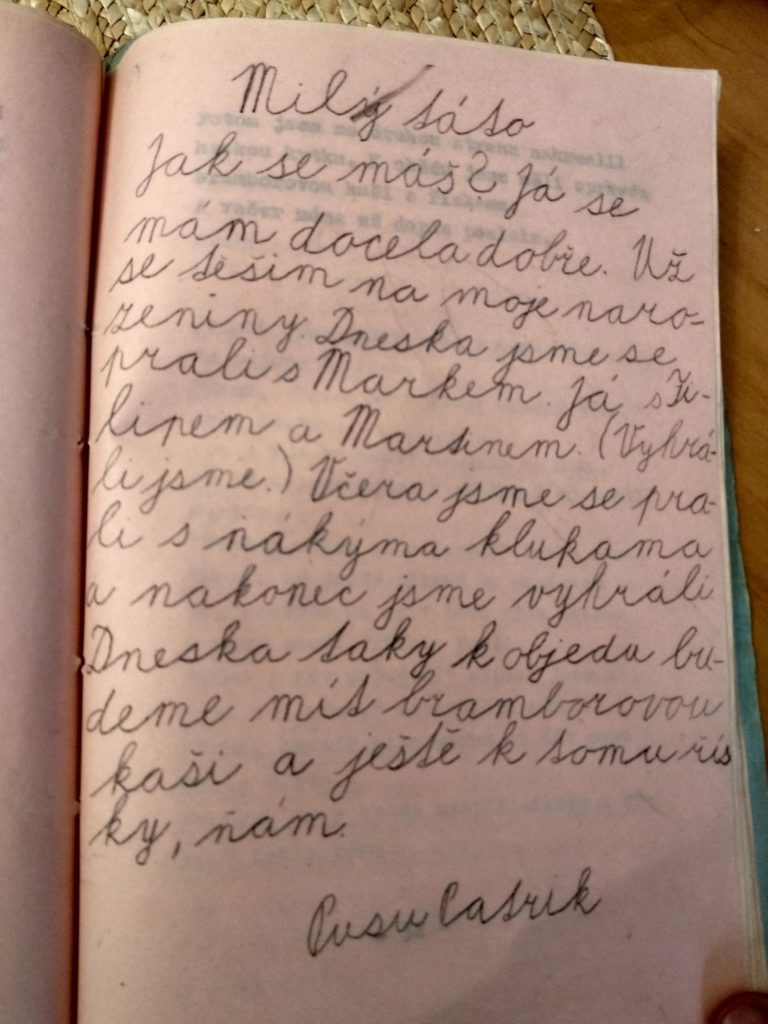 Milý táto
Jak se máš? Já se
mám docela dobře. Už
se těším na moje naro-
zeniny. Dneska jsme se
prali s Markem. Já s Fi-
lipem a Martinem. (Vyhrá-
li jsme.) Včera jsme se pra-
li s nákýma klukama
a nakonec jsme vyhráli
Dneska taky k objedu bu-
deme mít bramborovou
kaši a ještě k tomu řís
ky, ňám.
Pusu Patrik